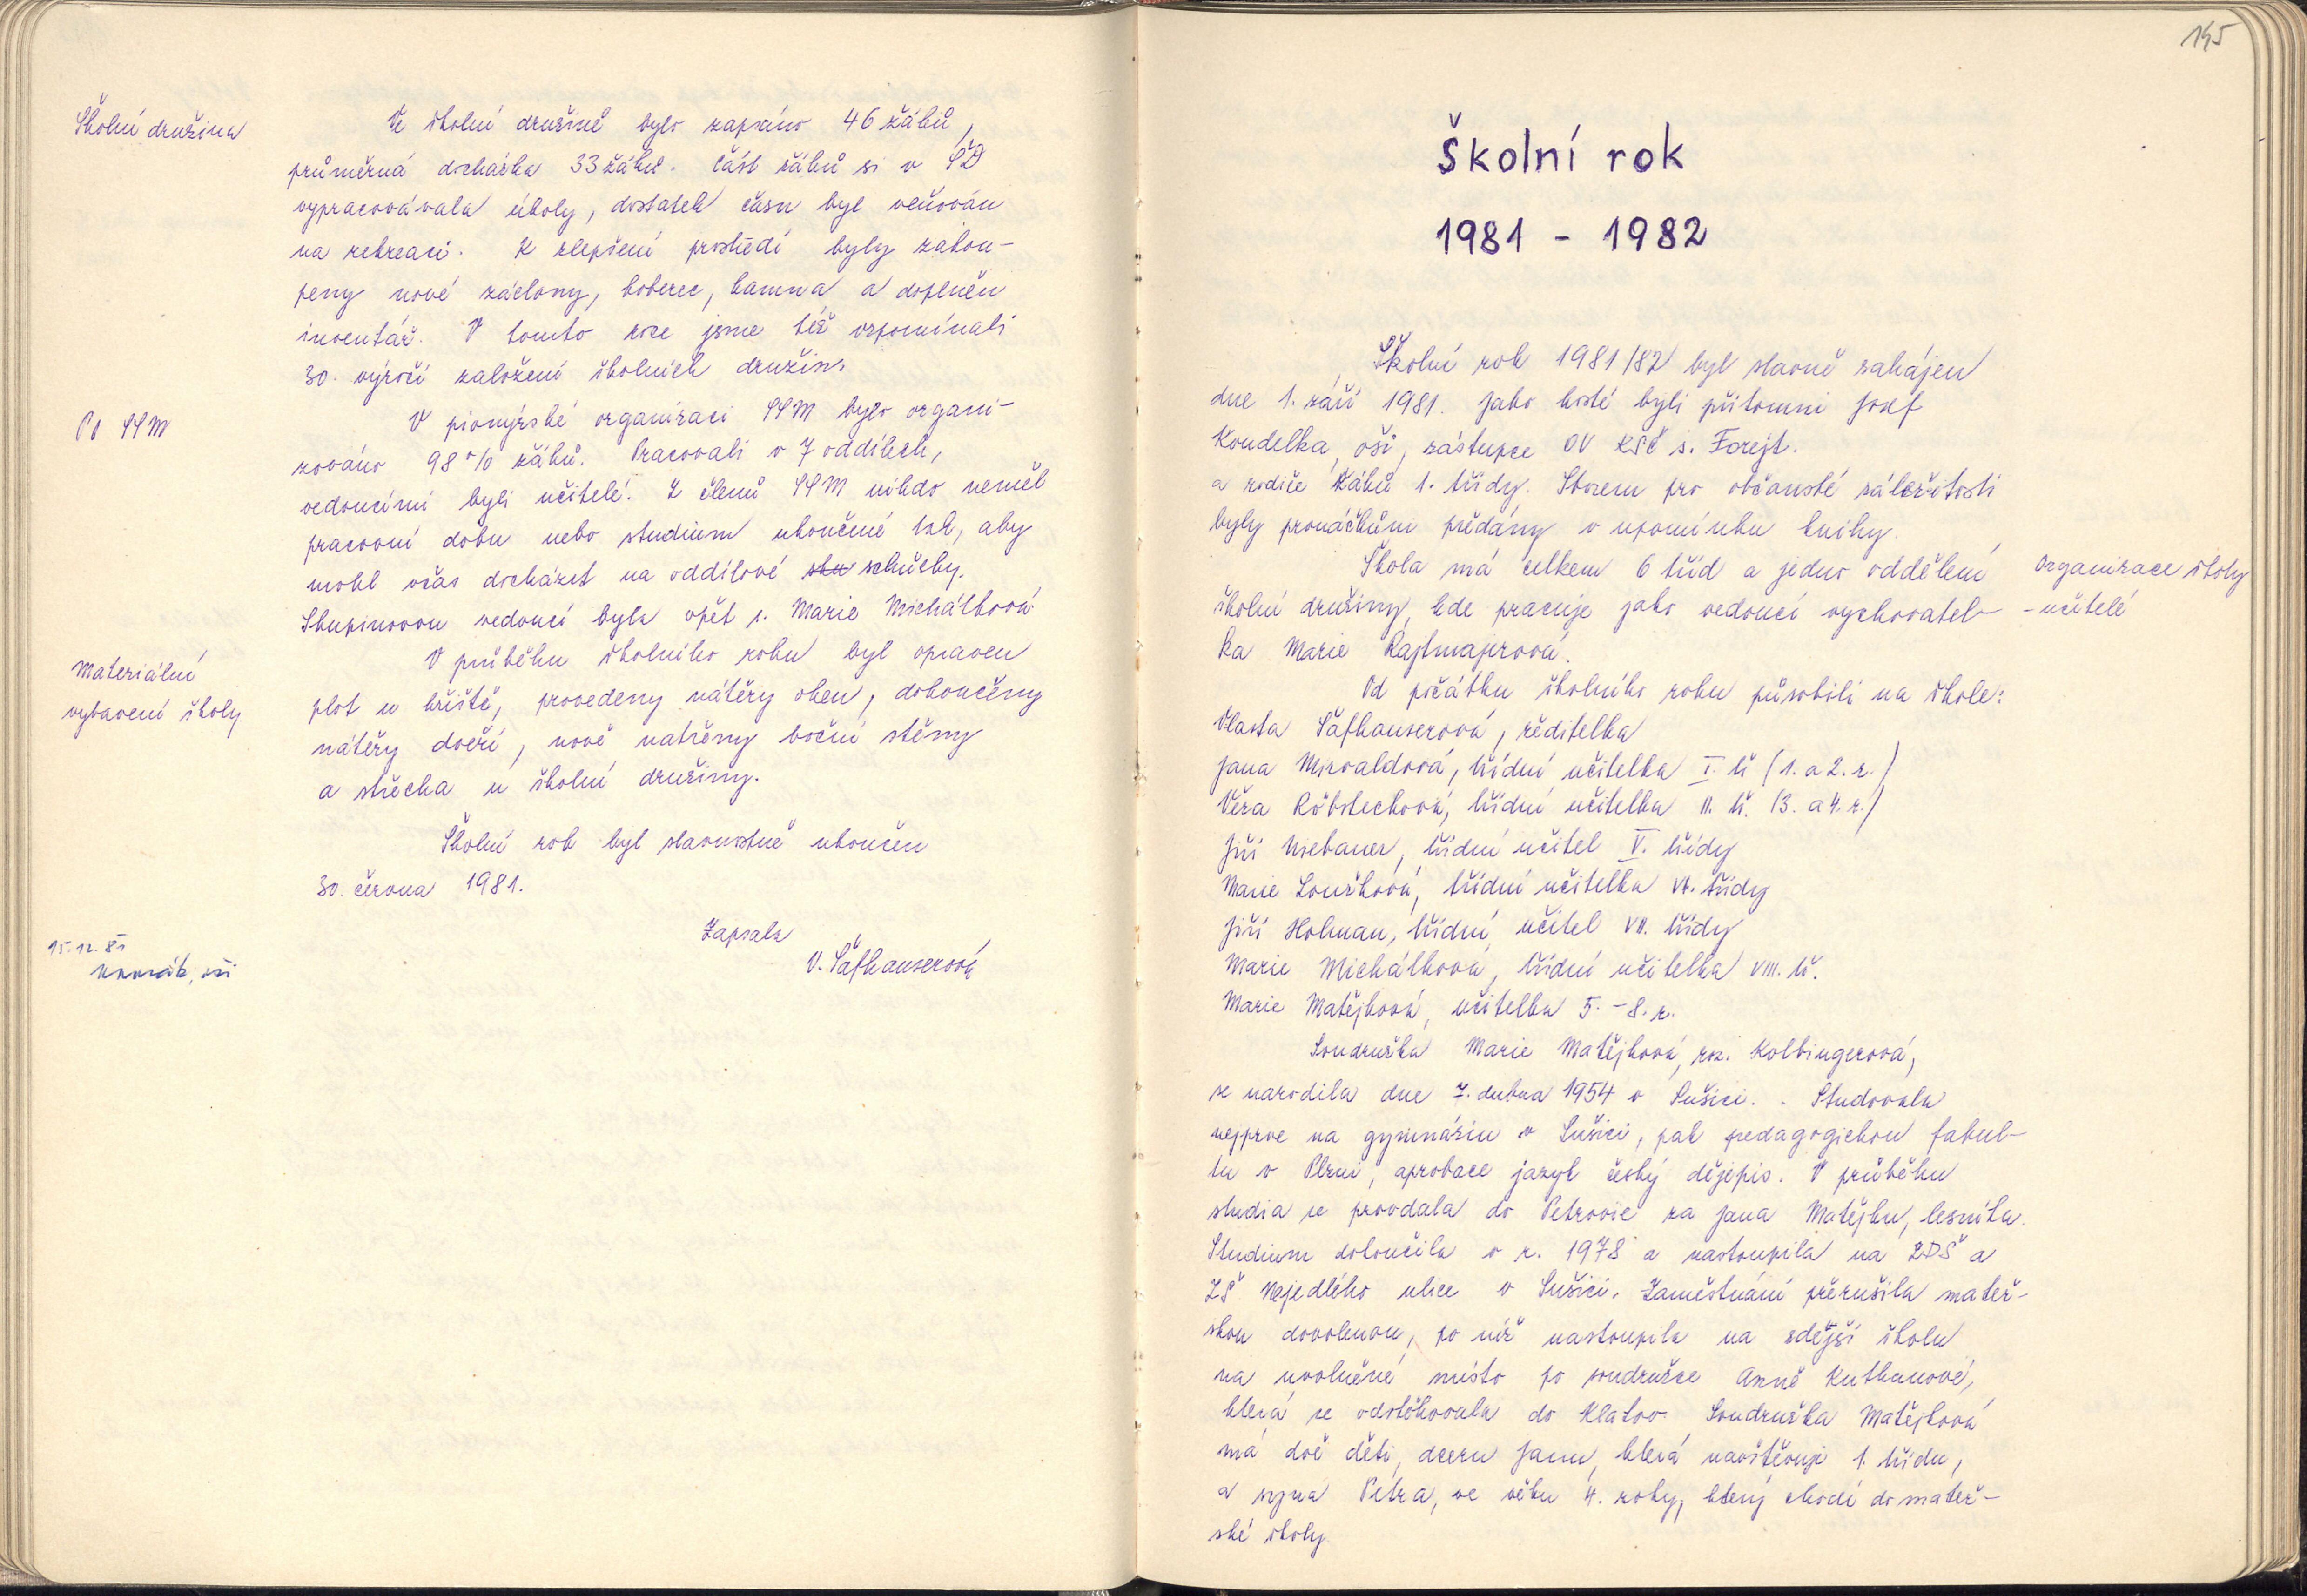 Školní družina
Ve školní družině bylo zapsáno 46 žáků,
průměrná docházka 33 žáků. Část žáků si v ŠD
vypracovávala úkoly, dostatek času byl věnován
na rekreaci. K zlepšení prostředí byly zakou-
peny nové záclony, koberec, kamna a doplněn
inventář. V tomto roce jsme též vzpomínali
30. výročí založení školních družin.
PO SSM
V pionýrské organizaci SSM bylo organi-
zováno 98% žáků. Pracovali v 7 oddílech,
vedoucími byli učitelé. Z členů SSM nikdo neměl
pracovní dobu nebo studium ukončené tak, aby
mohl včas docházet na oddílové schůzky.
Skupinovou vedoucí byla opět s. Marie Michálková
Materiální
vybavení školy
V průběhu školního roku byl opraven
plot u hřiště, provedeny nátěry oken, dokončeny
nátěry dveří, nově natřeny boční stěny
a střecha u školní družiny.
Školní rok byl slavnostně ukončen
30. června 1981.
Zapsala
V. Šafhauserová
15.12.81
145
Školní rok
1981 - 1982
Školní rok 1981/82 byl slavně zahájen
dne 1. září 1981. Jako hosté byli přítomni Josef
Koudelka, oši, zástupce OV KSČ s. Forejt.
a rodiče žáků 1. třídy. Sborem pro občanské záležitosti
byly prvňáčkům předány v upomínku knihy.
Škola má celkem 6 tříd a jedno oddělení
školní družiny, kde pracuje jako vedoucí vychovatel-
ka Marie Rajtmajerová.
Organizace školy
- učitelé
Od počátku školního roku působili na škole:
Vlasta Šafhauserová, ředitelka
Jana Mirvaldová, třídní učitelka I. tř (1. a 2. r.)
Věra Röbstecková, třídní učitelka II. tř. (3. a 4. r.)
Jiří Niebauer, třídní učitel V. třídy
Marie Loužková, třídní učitelka VI. třídy
Jiří Holman, třídní učitel VII. třídy
Marie Michálková, třídní učitelka VIII. tř.
Marie Matějková, učitelka 5. - 8. r.
Soudružka Marie Matějková, roz. Kolbingerová,
se narodila dne 7. dubna 1954 v Sušici. Studovala
nejprve na gymnáziu v Sušici, pak pedagogickou fakul-
tu v Plzni, aprobace jazyk český dějepis. V průběhu
studia se provdala do Petrovic za Jana Matějku, lesníka.
Studium dokončila v r. 1978 a nastoupila na ZDŠ a
ZŠ Nejedlého ulice v Sušici. Zaměstnání přerušila mateř-
skou dovolenou, po níž nastoupila na zdejší školu
na uvolněné místo po soudružce Anně Kuthanové,
která se odstěhovala do Klatov. Soudružka Matějková
má dvě děti, dceru Janu, která navštěvuje 1. třídu,
a syna Petra, ve věku 4. roky, který chodí do mateř-
ské školy.